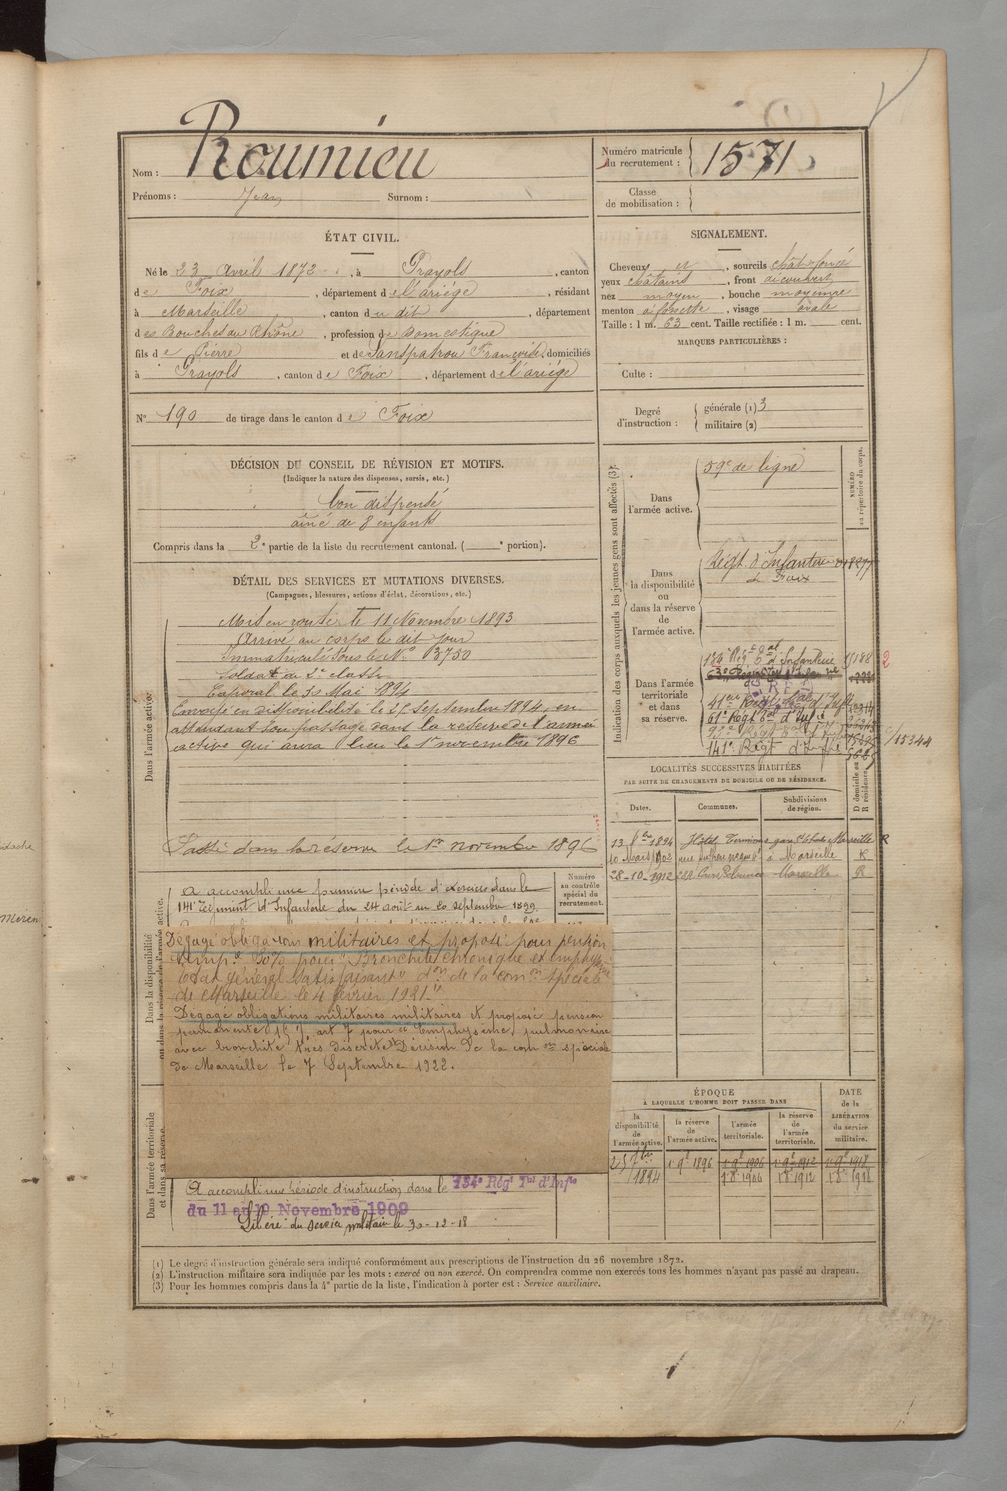 Nom : Roumieu
Prénoms : Jean Surnom :
Numéro matricule du recrutement : 1571
Classe de mobilisation :
ÉTAT CIVIL.
Né le 23 Avril 1872, à Prayols, canton
de Foix, département de l'ariège, résidant
à Marseille, canton du dit, département
des Bouches du Rhône, profession de Domestique
fils de Pierre et de Sanspatrou Françoise, domiciliés
à Prayols, canton de Foix, département de l'ariège
N° 190 de tirage dans le canton de Foix
SIGNALEMENT.
Cheveux et, sourcils chât. foncé
yeux châtains, front découvert
nez moyen, bouche moyenne
menton à fossette, visage ovale
Taille : 1 m. 63 cent. Taille rectifiée : 1 m. cent.
MARQUES PARTICULIÈRES :
Culte :
Degré d'instruction : générale (1) 3
militaire (2)
DÉCISION DU CONSEIL DE RÉVISION ET MOTIFS.
(Indiquer la nature des dispenses, sursis, etc.)
bon dispensé
aîné de 8 enfants
Compris dans la 2e partie de la liste du recrutement cantonal. ( e portion).
DÉTAIL DES SERVICES ET MUTATIONS DIVERSES.
(Campagnes, blessures, actions d'éclat, décorations, etc.)
Dans l'armée active.
Mis en route le 11 Novembre 1893
Arrivé au corps le dit jour
Immatriculé sous le N° 3750
Soldat de 2e classe
Caporal le 31 Mai 1894
Envoyé en disponibilité le 25 Septembre 1894, en
attendant son passage dans la réserve de l'armée
active qui aura lieu le 1er novembre 1896
Passé dans la réserve le 1er novembre 1896
Dans la disponibilité ou dans la réserve de l'armée active.
Numéro au contrôle spécial du recrutement.
A accompli une première période d'exercices dans le
141e Régiment d'Infanterie du 24 août au 20 septembre 1899
Dégagé obligations militaires et proposé pour pension
pour "Bronchite chronique et emphys.
Etat général satisfaisant" de la comon spéciale
de Marseille le 4 février 1921.
Dégagé obligations militaires militaires et proposé pension
permanente art 7 pour "Emphysème pulmonaire
avec bronchite très discrète" Décision de la comon spéciale
de Marseille le 7 Septembre 1922.
Dans l'armée territoriale et dans sa réserve.
A accompli une période d'instruction dans le 134e Régt Tal d'Infie
du 11 au 19 Novembre 1909
Libéré du service militaire le 30-12-18
Indication des corps auxquels les jeunes gens sont affectés (3).
NUMÉRO au répertoire du corps.
Dans l'armée active. 59e de ligne
Dans la disponibilité ou dans la réserve de l'armée active.
Régt d'Infanterie
de Foix
Dans l'armée territoriale et dans sa réserve.
141e Régt d'Infie
15344
LOCALITÉS SUCCESSIVES HABITÉES
PAR SUITE DE CHANGEMENTS DE DOMICILE OU DE RÉSIDENCE.
Dates. Communes. Subdivisions de région. D domicile ou R résidence.
13 8bre 1894 Hôtel Terminus gare St Charles Marseille R
10 Mars 1902 à Marseille R
28-10-1912 Marseille R
ÉPOQUE
À LAQUELLE L'HOMME DOIT PASSER DANS
la disponibilité de l'armée active. la réserve de l'armée active. l'armée territoriale. la réserve de l'armée territoriale.
DATE de la LIBÉRATION du service militaire.
25 7bre 1894
(1) Le degré d'instruction générale sera indiqué conformément aux prescriptions de l'instruction du 26 novembre 1872.
(2) L'instruction militaire sera indiquée par les mots : exercé ou non exercé. On comprendra comme non exercés tous les hommes n'ayant pas passé au drapeau.
(3) Pour les hommes compris dans la 4e partie de la liste, l'indication à porter est : Service auxiliaire.